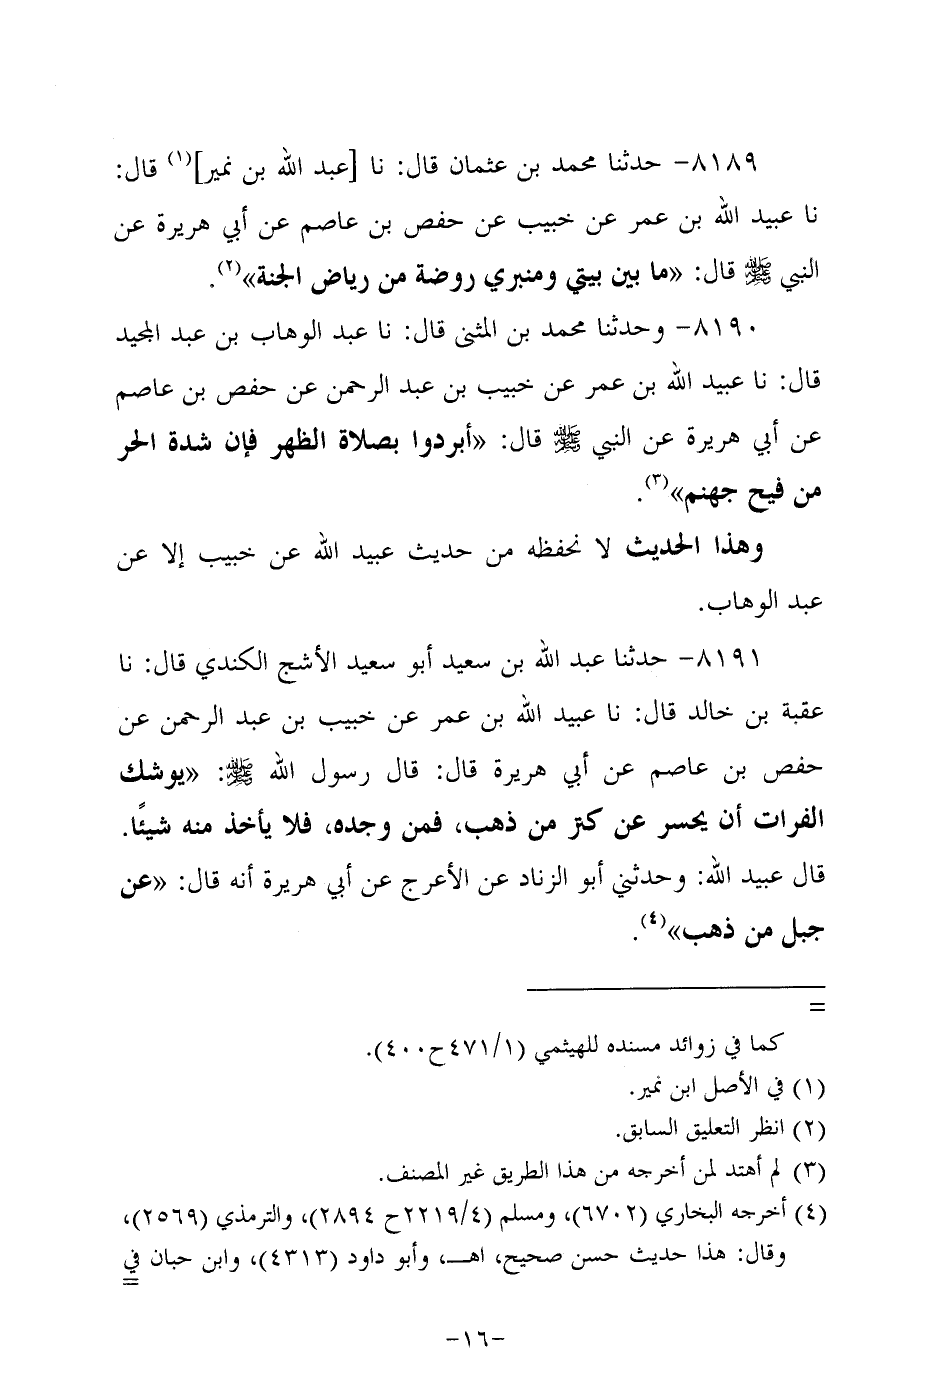 ٨١٨٩- حدثنا محمد بن عثمان قال: نا [عبد الله بن نمير](١) قال:
نا عبيد الله بن عمر عن خبيب عن حفص بن عاصم عن أبي هريرة عن
النبي ﷺ قال: «ما بين بيتي ومنبري روضة من رياض الجنة»(٢).
٨١٩٠- وحدثنا محمد بن المثنى قال: نا عبد الوهاب بن عبد المجيد
قال: نا عبيد الله بن عمر عن خبيب بن عبد الرحمن عن حفص بن عاصم
عن أبي هريرة عن النبي ﷺ قال: «أبردوا بصلاة الظهر فإن شدة الحر
من فيح جهنم»(٣).
وهذا الحديث لا نحفظه من حديث عبيد الله عن خبيب إلا عن
عبد الوهاب.
٨١٩١- حدثنا عبد الله بن سعيد أبو سعيد الأشج الكندي قال: نا
عقبة بن خالد قال: نا عبيد الله بن عمر عن خبيب بن عبد الرحمن عن
حفص بن عاصم عن أبي هريرة قال: قال رسول الله ﷺ: «يوشك
الفرات أن يحسر عن كنز من ذهب، فمن وجده، فلا يأخذ منه شيئًا.
قال عبيد الله: وحدثني أبو الزناد عن الأعرج عن أبي هريرة أنه قال: «عن
جبل من ذهب»(٤).
=
كما في زوائد مسنده للهيثمي (٤٧١/١ح٤٠٠).
(١) في الأصل ابن نمير.
(٢) انظر التعليق السابق.
(٣) لم أهتد لمن أخرجه من هذا الطريق غير المصنف.
(٤) أخرجه البخاري (٦٧٠٢)، ومسلم (٢٢١٩/٤ح ٢٨٩٤)، والترمذي (٢٥٦٩)،
وقال: هذا حديث حسن صحيح، اهـ، وأبو داود (٤٣١٣)، وابن حبان في
=
-١٦-